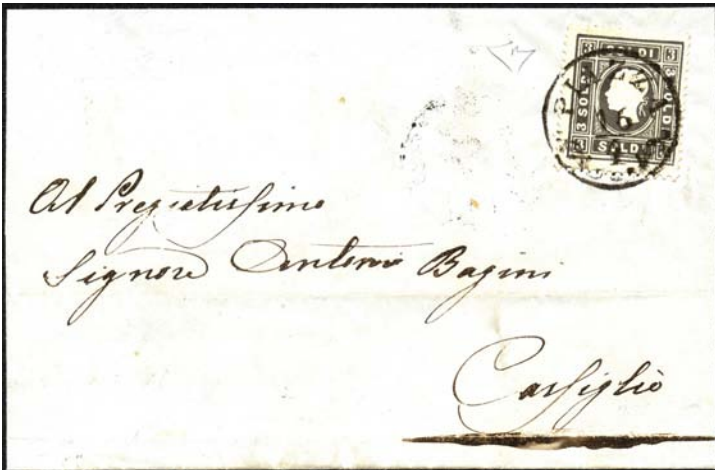 3 SOLDI 3
3 SOLDI
3 SOLDI
SOLDI
PIAZZA
Al Pregiatissimo
Signore Antonio Bagini
Cassiglio